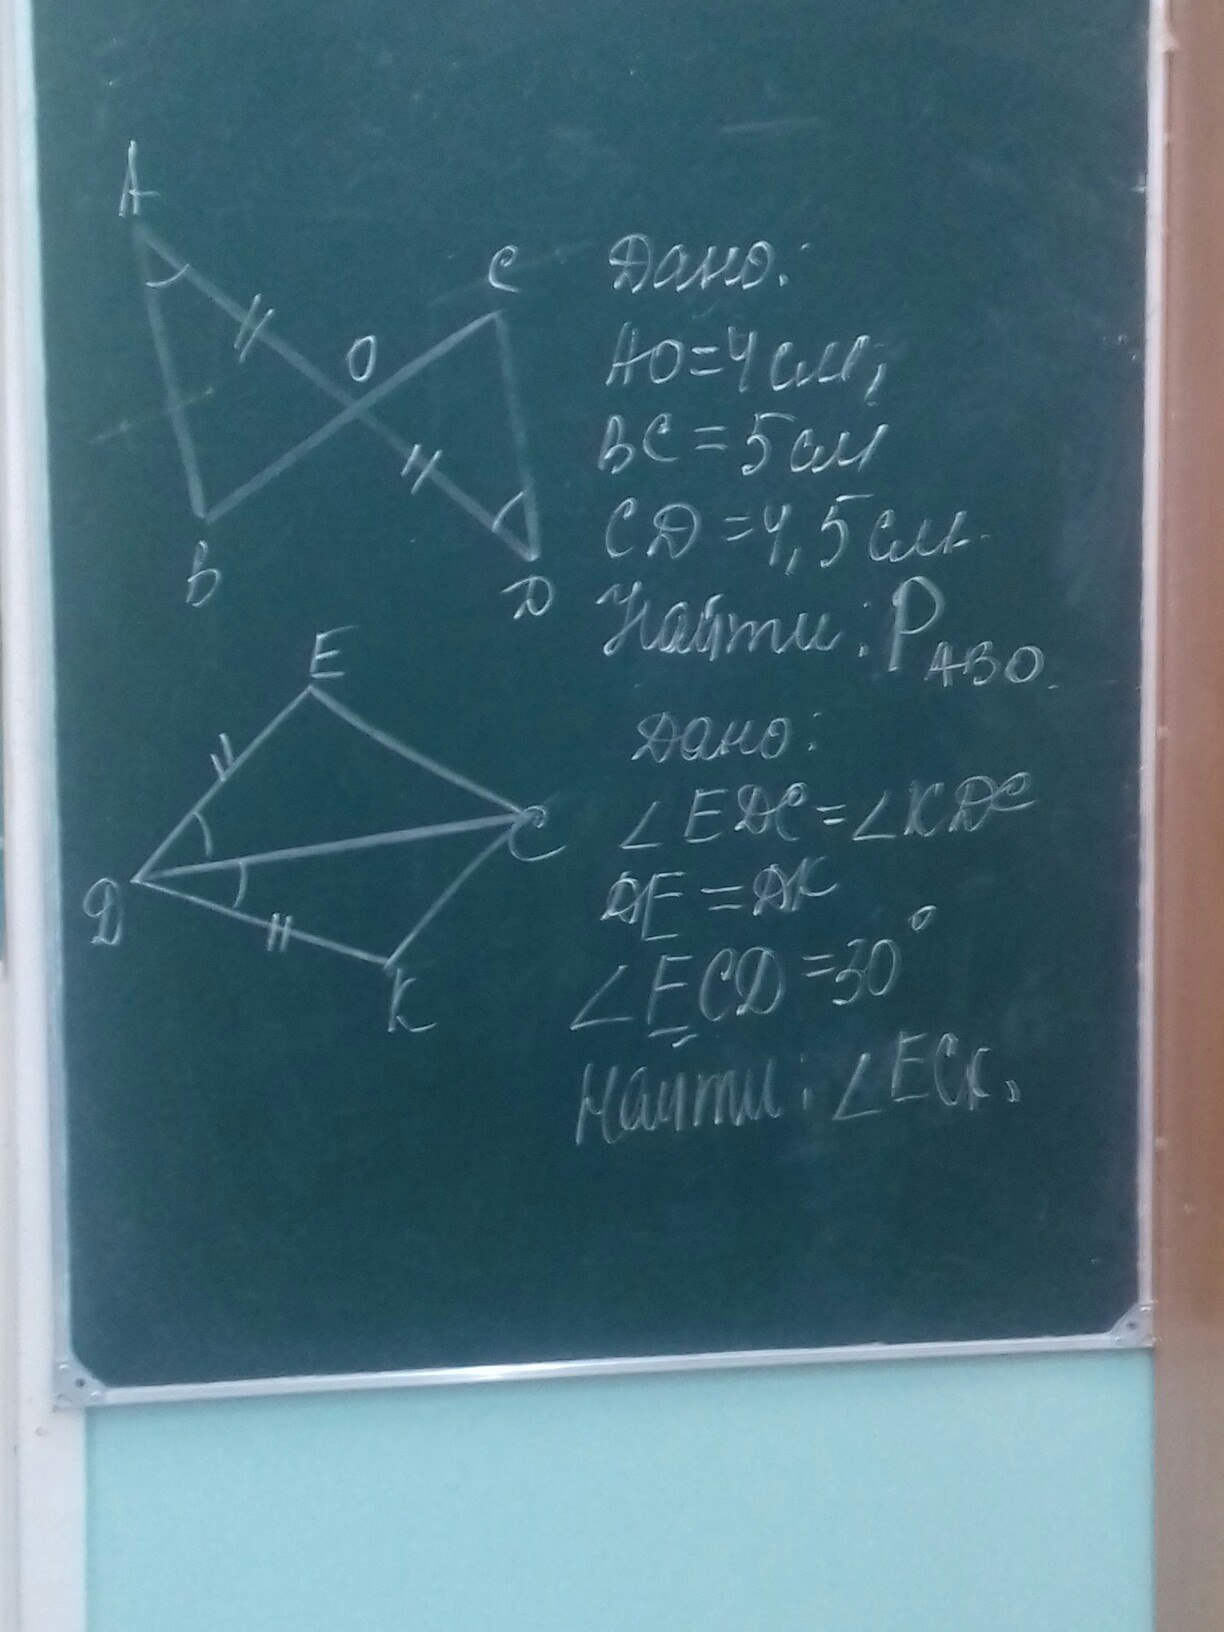 A
C
O
B
D
Дано:
AO=4см,
BC=5см
CD=4,5см.
Найти: P ABO.
E
C
D
K
Дано:
∠EDC=∠KDC
DE=DK
∠ECD=30°
Найти: ∠ECK.